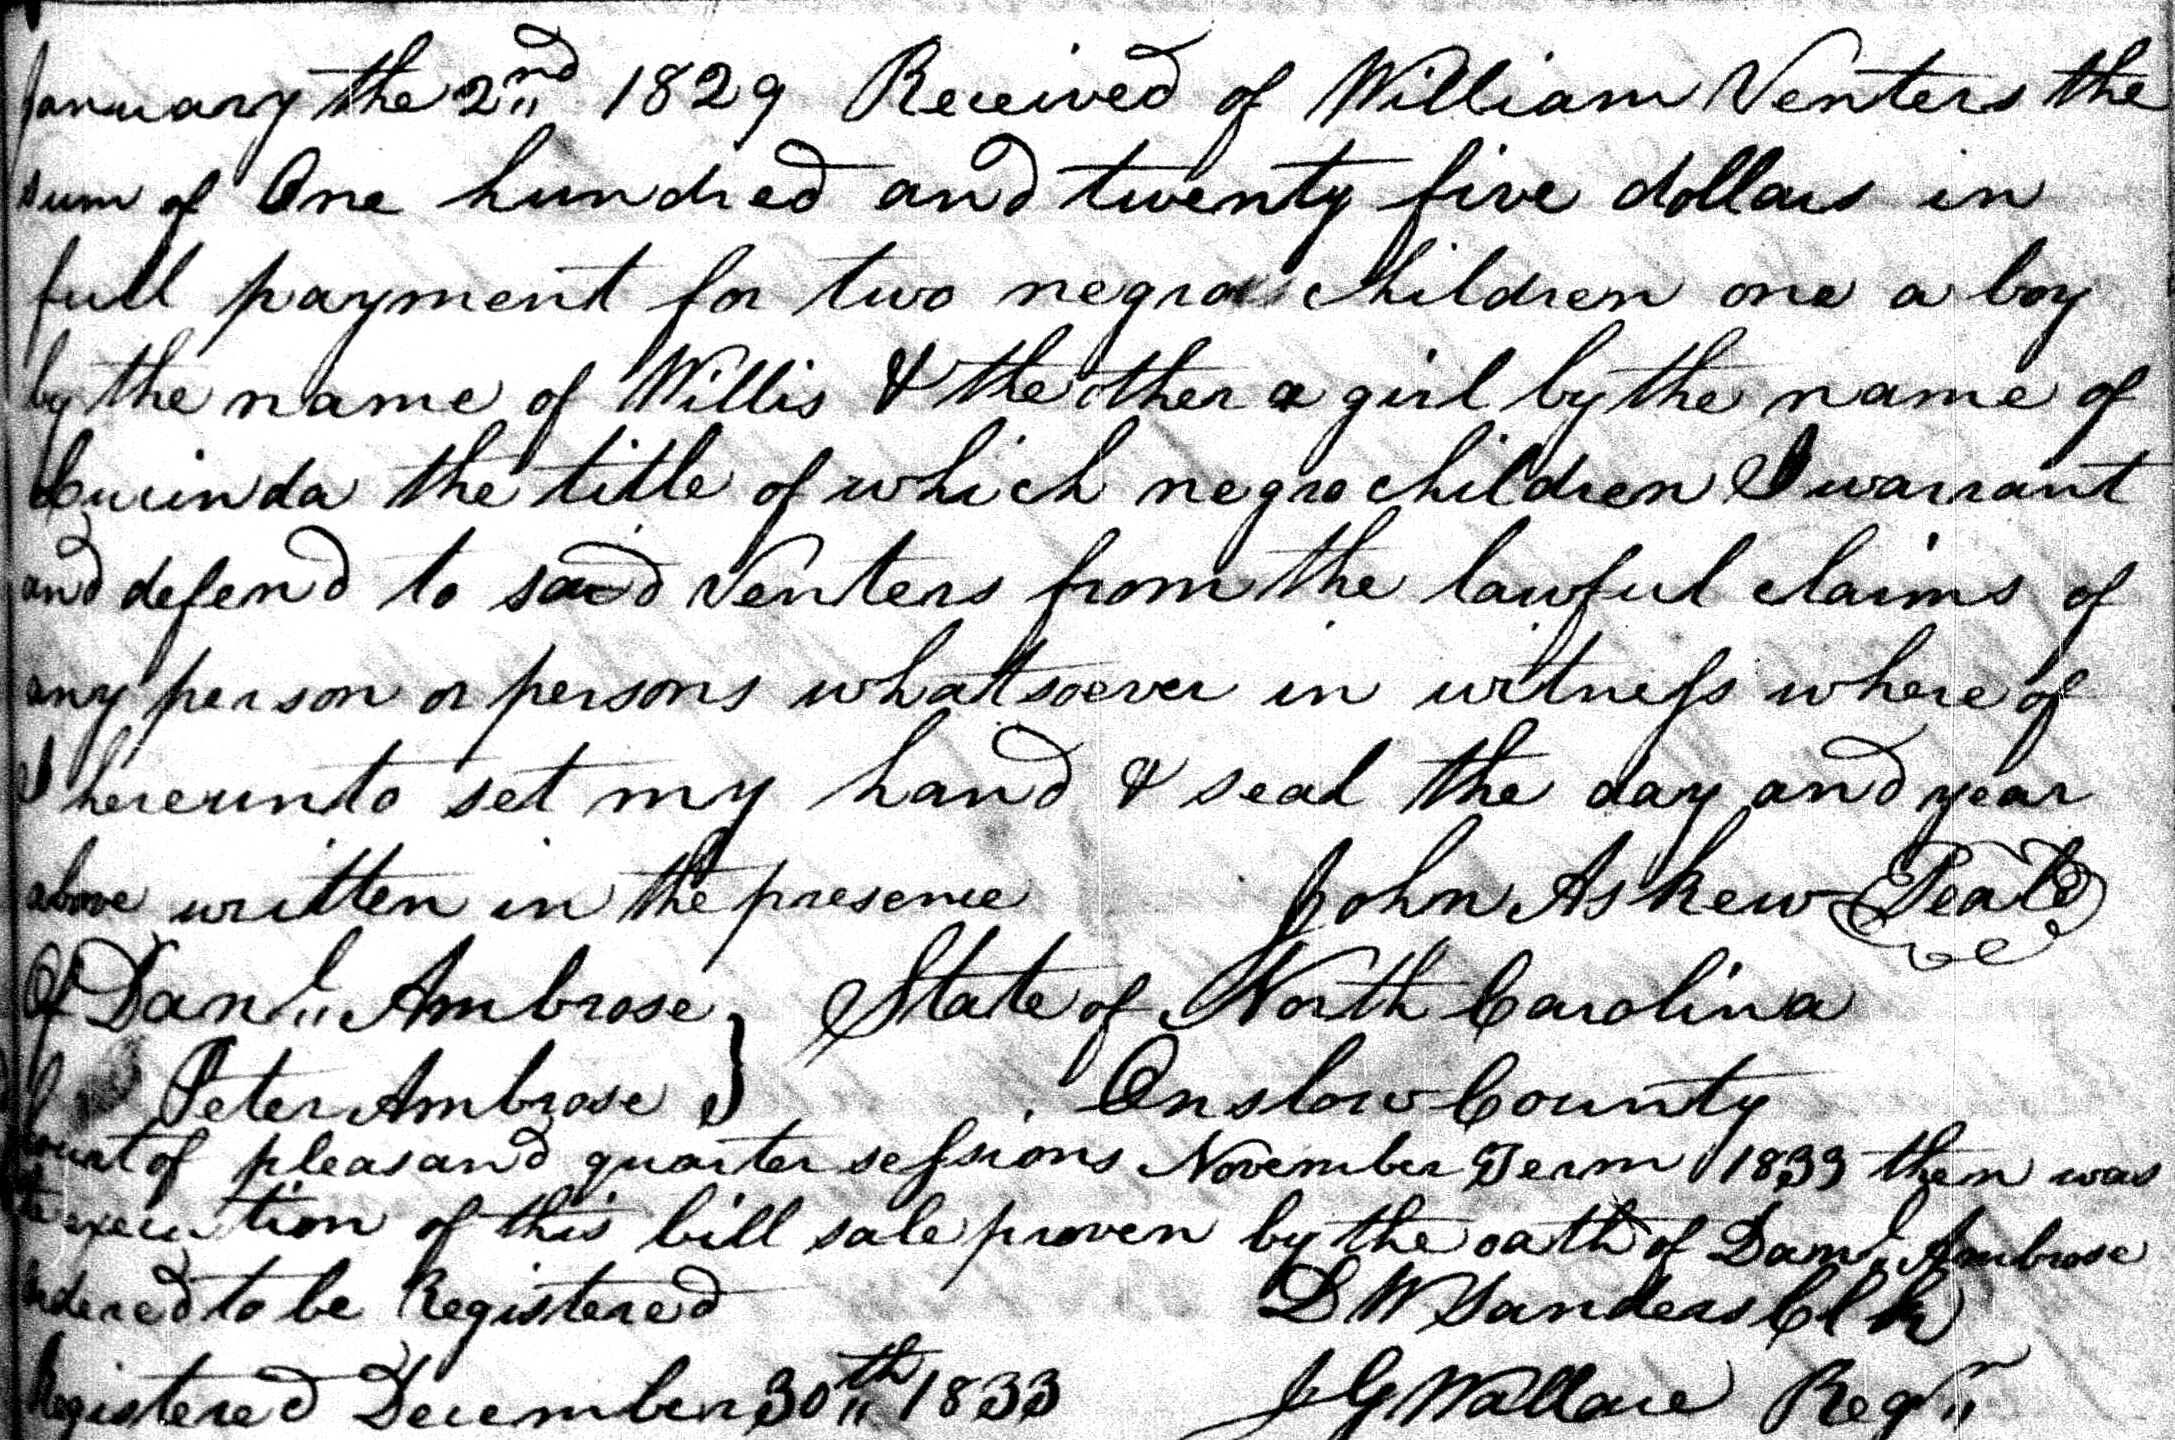 January the 2nd 1829 Received of William Venters the
sum of One hundred and twenty five dollars in
full payment for two negro children one a boy
by the name of Willis & the other a girl by the name of
Lucinda the title of which negro children I warrant
and defend to said Venters from the lawful claims of
any person or persons whatsoever in witness where of
I hereunto set my hand & seal the day and year
above written in the presence John Askew Seal
Of Danl Ambrose } State of North Carolina
Peter Ambrose } Onslow County
court of pleas and quarter sessions November Term 1833 then was
the execution of this bill sale proven by the oath of Danl Ambrose
ordered to be Registered D W Sanders Clk
Registered December 30th 1833 J G Wallace Regr